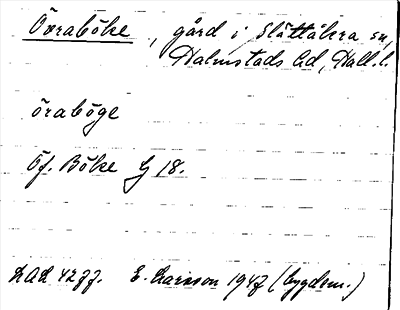 Övraböke, gård i Slättåkra sn,
Halmstads hd, Hall. l.
öraböge
Öf. Böke G 18.
LAL 4277. E. Larsson 1947 (bygdem.)